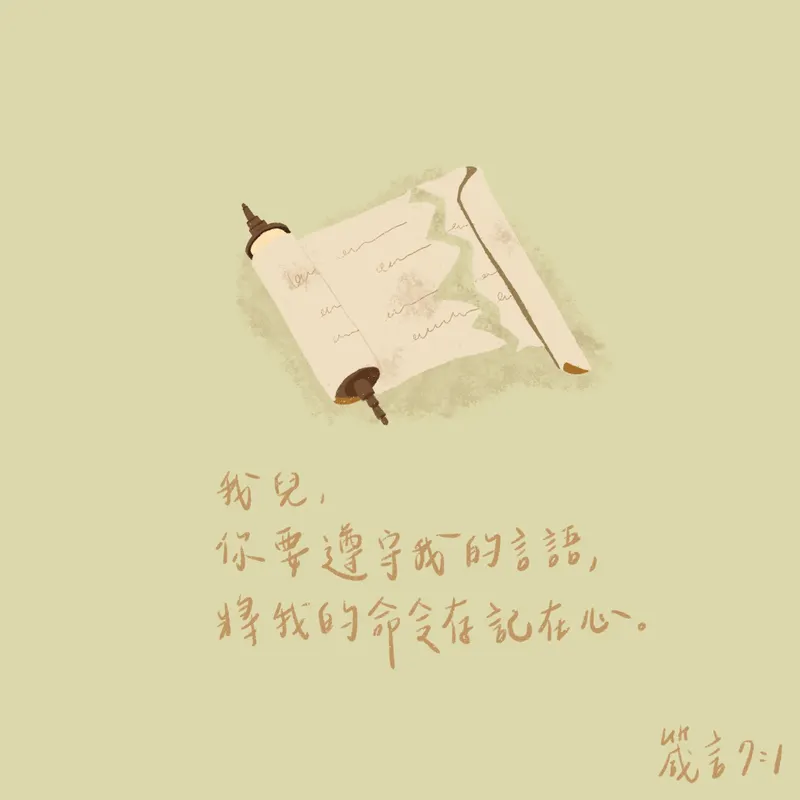 我兒,
你要遵守我的言語,
將我的命令存記在心。
箴言7:1